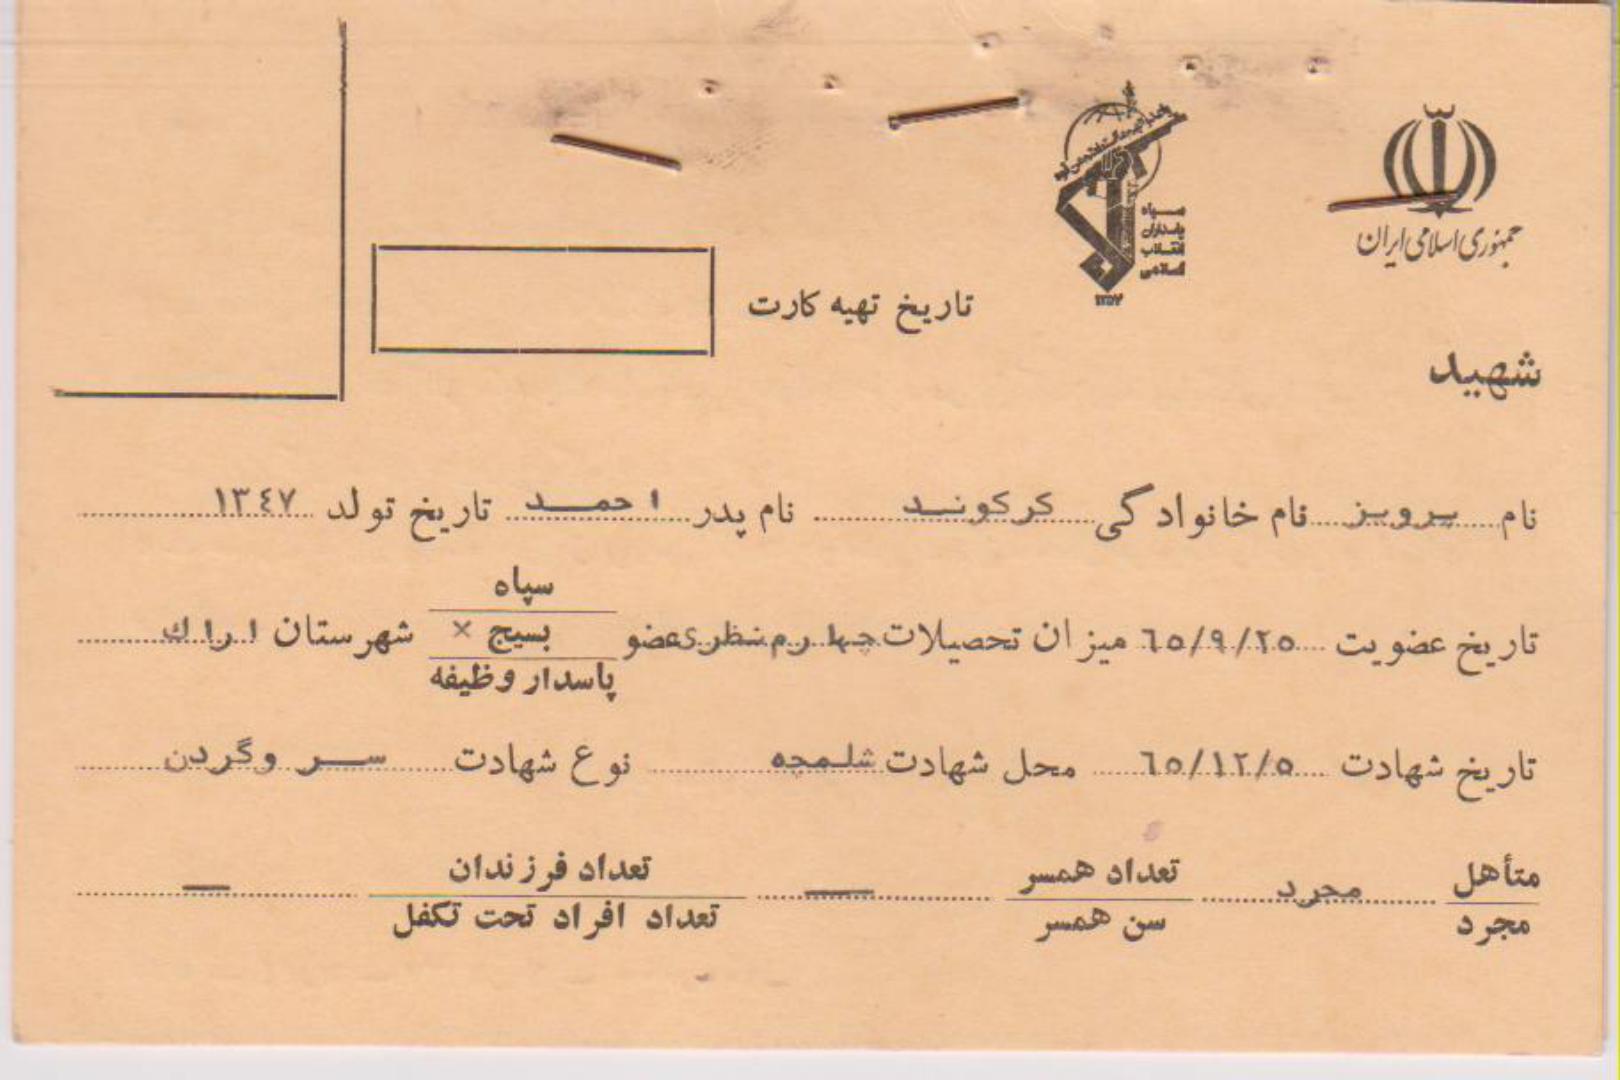 جمهوری اسلامی ایران
سپاه
پاسداران
انقلاب
اسلامی
۱۳۵۷
تاریخ تهیه کارت
شهید
نام پرویز نام خانوادگی کرکوند نام پدر احمد تاریخ تولد ۱۳٤۷
سپاه
تاریخ عضویت ٦٥/۹/۲٥ میزان تحصیلات چهارم نظری عضو بسیج × شهرستان اراك
پاسدار وظیفه
تاریخ شهادت ٦٥/۱۲/٥ محل شهادت شلمچه نوع شهادت سر و گردن
متأهل مجرد تعداد همسر — تعداد فرزندان —
مجرد سن همسر تعداد افراد تحت تکفل